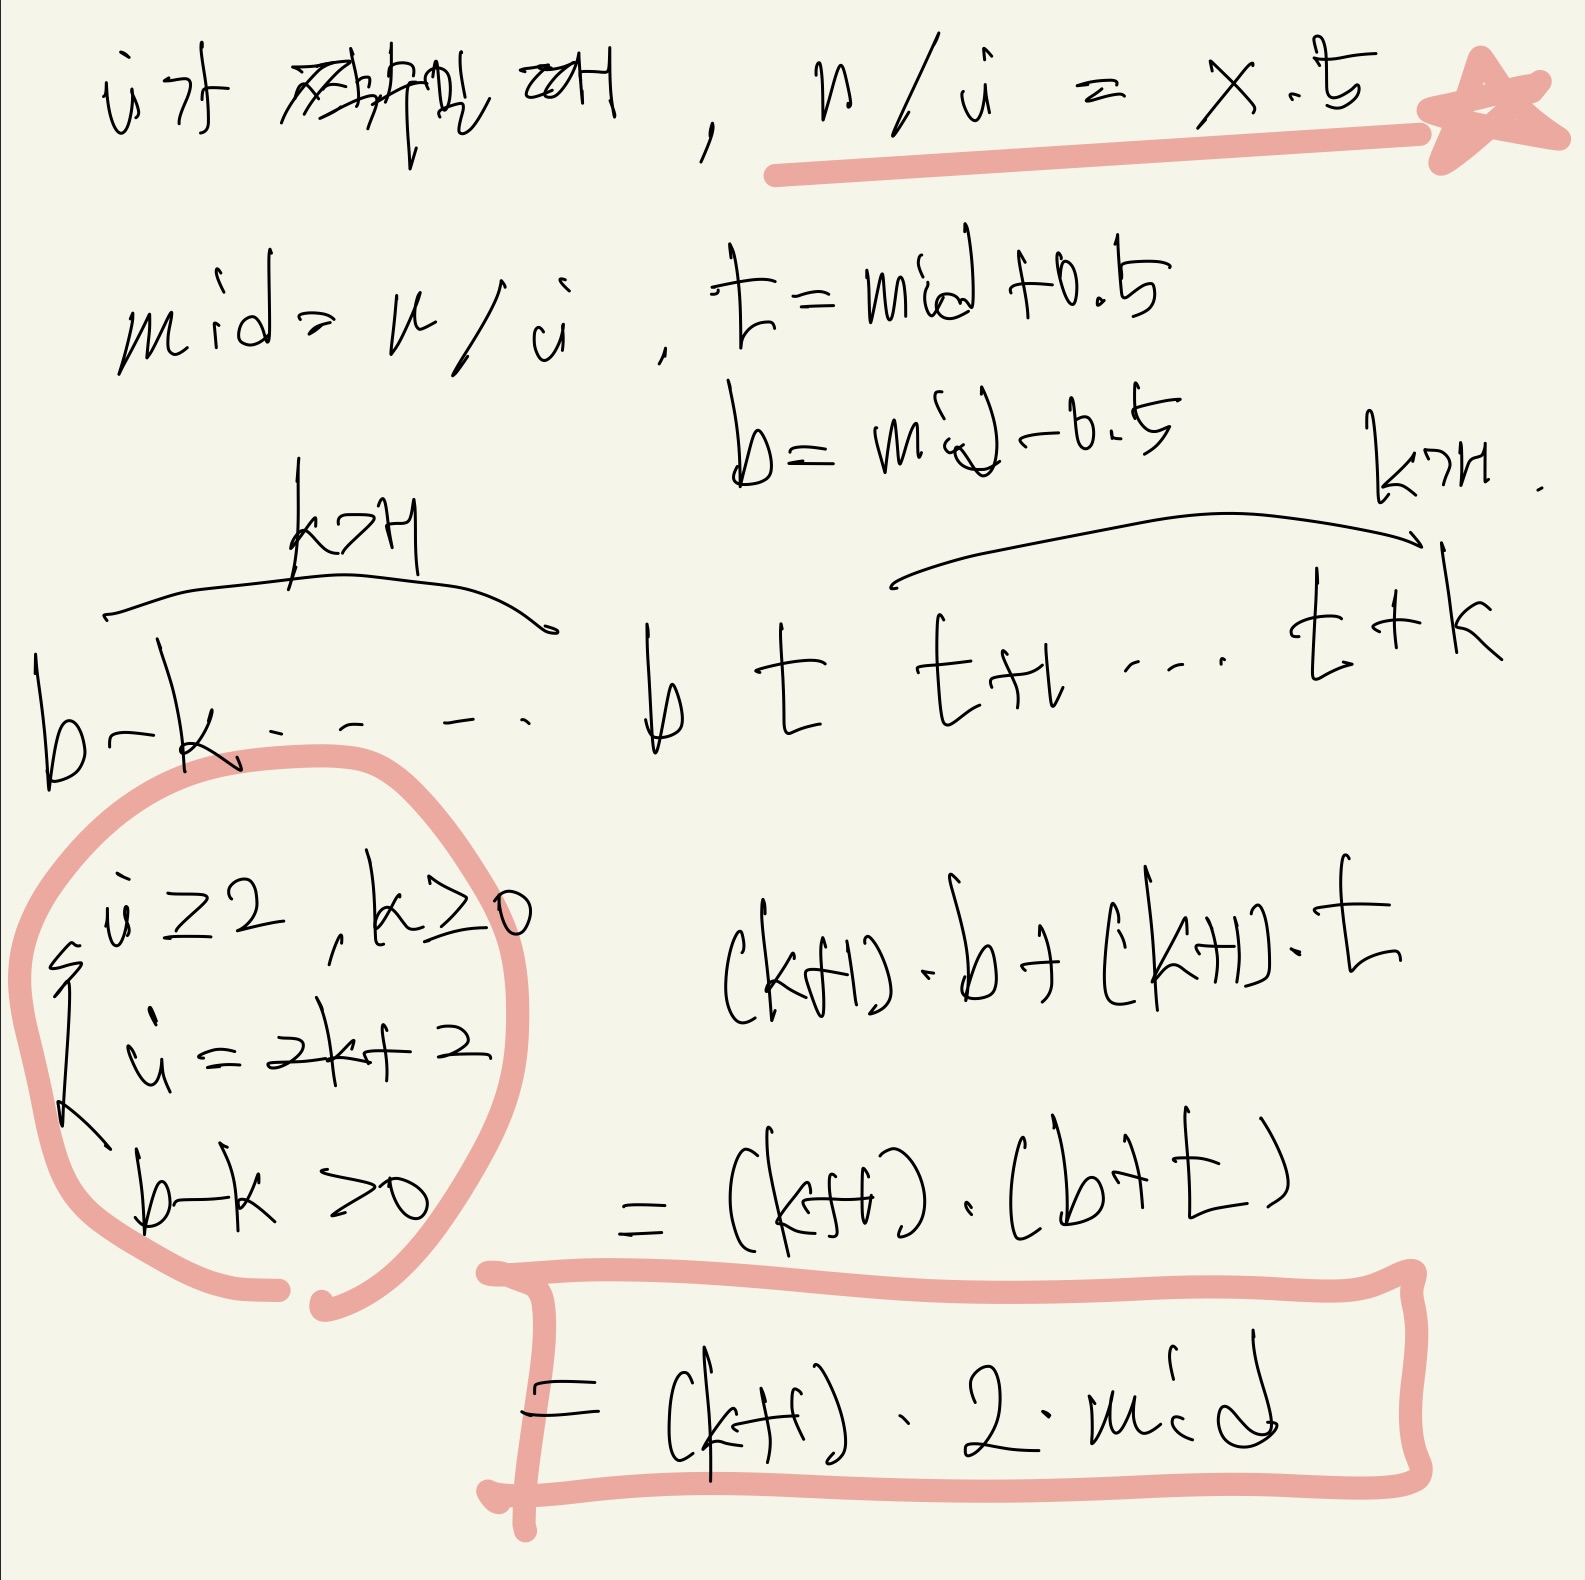 i가 짝수일 때, n/i = x.5
mid = n/i, t = mid+0.5
b = mid-0.5
k개 k개.
b-k .... b t t+1 ... t+k
i≥2, k≥0
i = 2k+2
b-k >0
(k+1)·b+(k+1)·t
= (k+1)·(b+t)
= (k+1)·2·mid